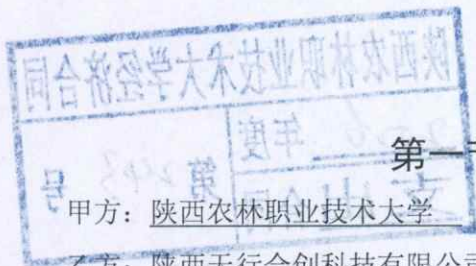 陕西农林职业技术大学经济合同
年度
第
号
第一
甲方：陕西农林职业技术大学
乙方：陕西天行合创科技有限公